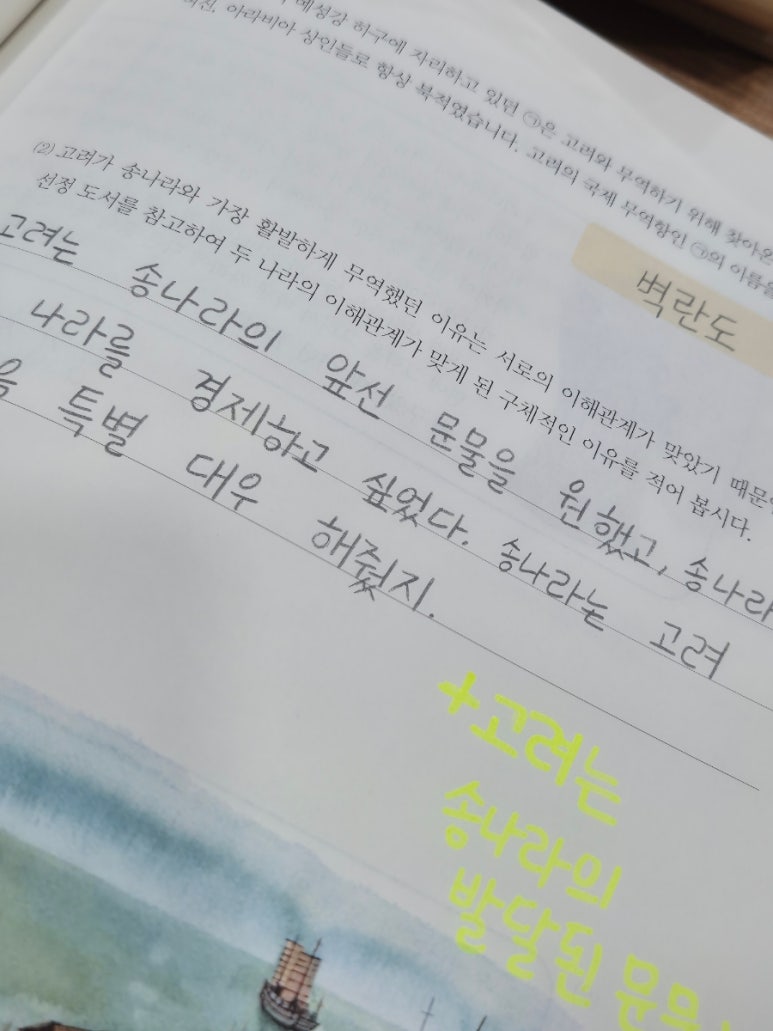 예성강 하구에 자리하고 있던 ㉠은 고려와 무역하기 위해 찾아온
아라비아 상인들로 항상 북적였습니다. 고려의 국제 무역항인 ㉠의 이름을
벽란도
(2) 고려가 송나라와 가장 활발하게 무역했던 이유는 서로의 이해관계가 맞았기 때문
선정 도서를 참고하여 두 나라의 이해관계가 맞게 된 구체적인 이유를 적어 봅시다.
고려는 송나라의 앞선 문물을 원했고, 송나라
나라를 경제하고 싶었다. 송나라는 고려
을 특별 대우 해줬지.
+고려는
송나라의
발달된 문